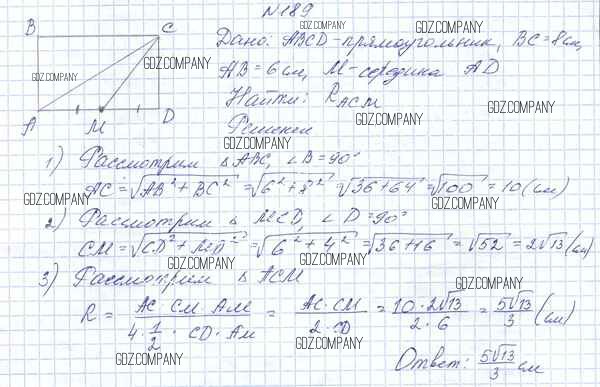 №189
B C
A M D
Дано: ABCD - прямоугольник, BC = 8 см,
AB = 6 см, M - середина AD
Найти: R_ACM
Решение
1) Рассмотрим △ABC, ∠B = 90°
AC = √(AB² + BC²) = √(6² + 8²) = √(36+64) = √100 = 10 (см)
2) Рассмотрим △ MCD, ∠D = 90°
CM = √(CD² + MD²) = √(6² + 4²) = √(36+16) = √52 = 2√13 (см)
3) Рассмотрим △ ACM
R = (AC · CM · AM)/(4 · 1/2 · CD · AM) = (AC · CM)/(2 · CD) = (10 · 2√13)/(2 · 6) = 5√13/3 (см)
Ответ: 5√13/3 см
GDZ.COMPANY
GDZ.COMPANY
GDZ.COMPANY
GDZ.COMPANY
GDZ.COMPANY
GDZ.COMPANY
GDZ.COMPANY
GDZ.COMPANY
GDZ.COMPANY
GDZ.COMPANY
GDZ.COMPANY
GDZ.COMPANY
GDZ.COMPANY
GDZ.COMPANY